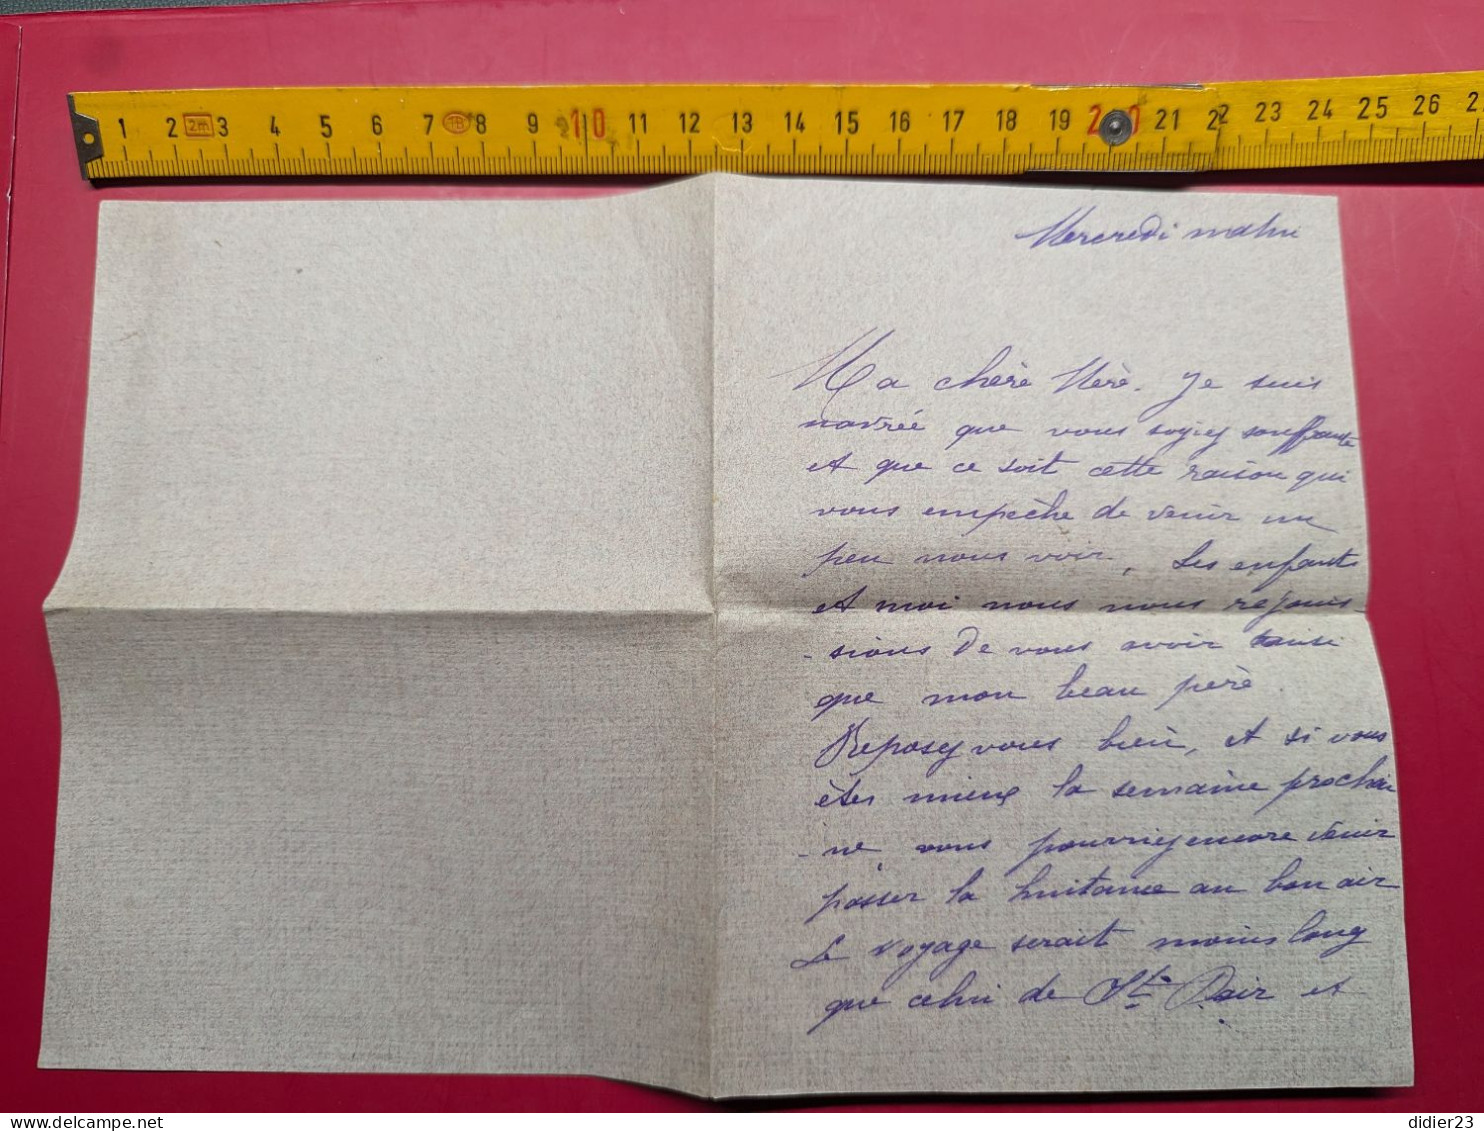 1 2 2m 3 4 5 6 7 8 9 10 11 12 13 14 15 16 17 18 19 20 21 22 23 24 25 26 2
Mercredi matin
Ma chère Mère. Je suis
navrée que vous soyiez souffrante
et que ce soit cette raison qui
vous empèche de venir un
peu nous voir, Les enfants
et moi nous nous rejouis
-sions de vous avoir ainsi
que mon beau père.
Reposez vous bien, et si vous
êtes mieux la semaine prochai
-ne, vous pourriez encore venir
passer la huitaine au bon air
Le voyage serait moins long
que celui de St. Pair et
didier23